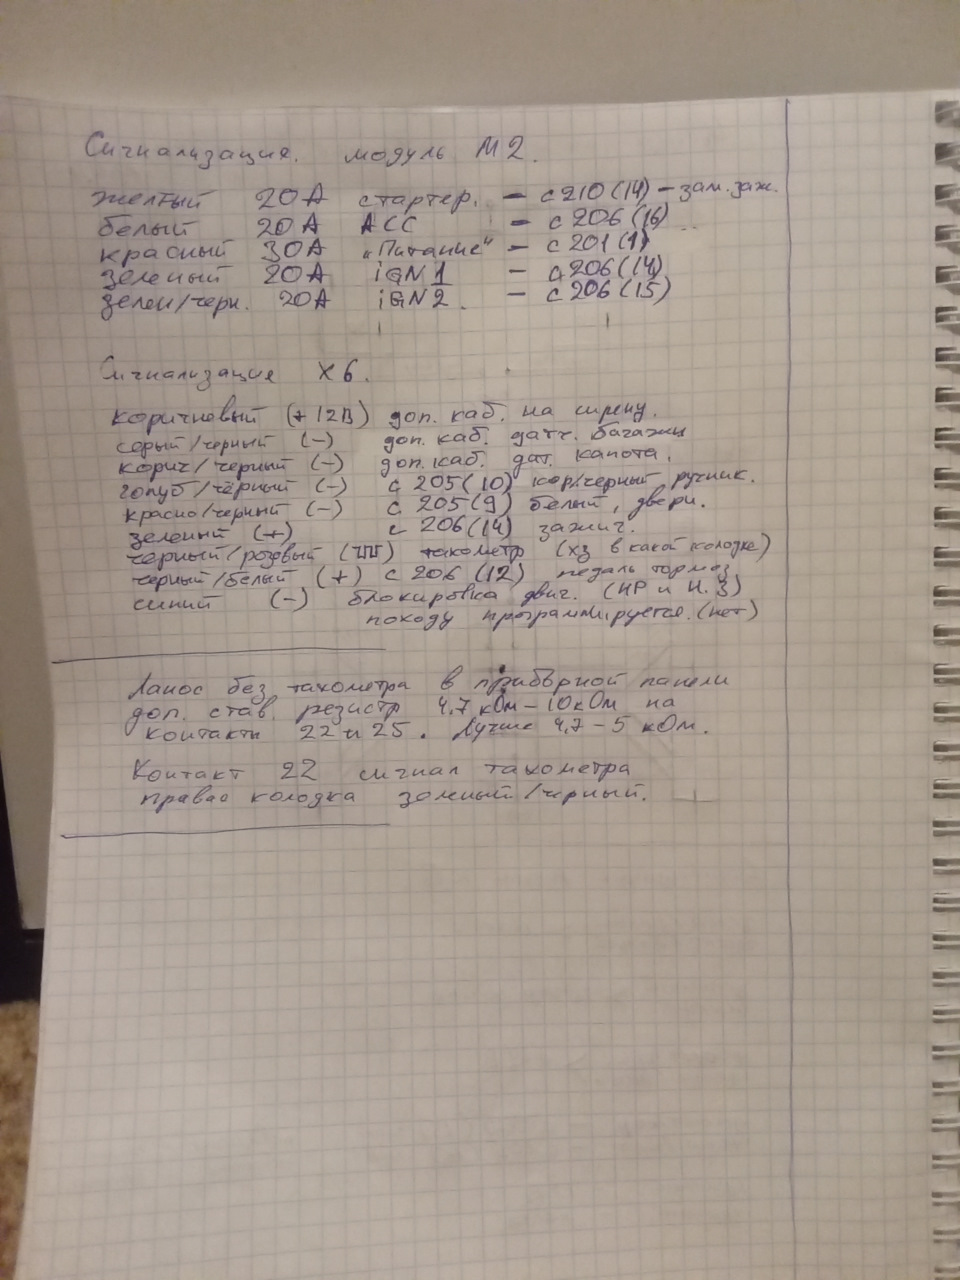 Сигнализация. модуль М2.
желтый 20А стартер. – с210(14) – зам. заж.
белый 20А АСС – с206(16)
красный 30А „Питание" – с201(1)
зеленый 20А iGN1 – с206(14)
зелен/черн. 20А iGN2. – с206(15)
Сигнализация Х6.
коричневый (+12В) доп. каб. на сирену.
серый/черный (–) доп. каб. датч. багажн
корич/черный (–) доп. каб. дат. капота.
голуб/чёрный (–) с 205(10) кор/черный ручник.
красно/черный (–) с 205(9) белый, двери.
зеленый (+) с 206(14) зажиг.
черный/розовый тахометр (хз в какой колодке)
черный/белый (+) с 206 (12) педаль тормоз
синий (–) блокировка двиг. (НР и Н.З)
походу программируется. (нет)
Ланос без тахометра в приборной панели
доп. став. резистр 4.7 кОм – 10 кОм на
контакты 22 и 25. Лучше 4,7 – 5 кОм.
Контакт 22 сигнал тахометра
правая колодка зеленый/черный.